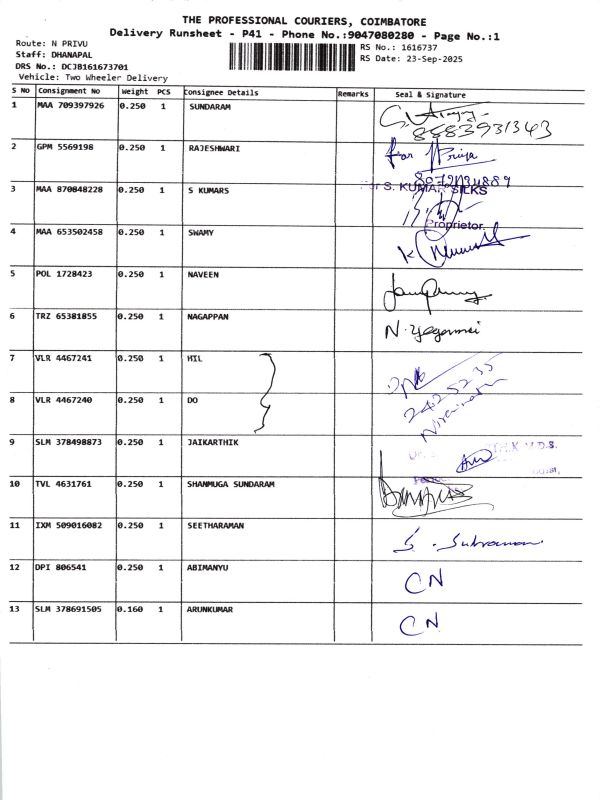 THE PROFESSIONAL COURIERS, COIMBATORE
Delivery Runsheet - P41 - Phone No.:9047080280 - Page No.:1
Route: N PRIVU
Staff: DHANAPAL
DRS No.: DCJB161673701
Vehicle: Two Wheeler Delivery
RS No.: 1616737
RS Date: 23-Sep-2025
S No Consignment No Weight PCS Consignee Details Remarks Seal & Signature
1 MAA 709397926 0.250 1 SUNDARAM
8883931343
2 GPM 5569198 0.250 1 RAJESHWARI for Priya
3 MAA 870848228 0.250 1 S KUMARS For S. KUMAR SILKS
Proprietor
4 MAA 653502458 0.250 1 SWAMY
5 POL 1728423 0.250 1 NAVEEN
6 TRZ 65381855 0.250 1 NAGAPPAN
7 VLR 4467241 0.250 1 HIL
8 VLR 4467240 0.250 1 DO
9 SLM 378498873 0.250 1 JAIKARTHIK
10 TVL 4631761 0.250 1 SHANMUGA SUNDARAM
11 IXM 509016082 0.250 1 SEETHARAMAN
12 DPI 806541 0.250 1 ABIMANYU CN
13 SLM 378691505 0.160 1 ARUNKUMAR CN